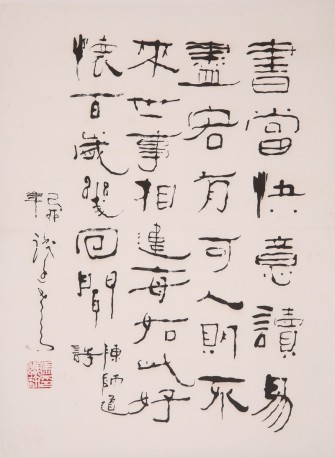 書當快意讀易
盡客有可人期不
來世事相違每如此好
懷百歲幾回開
陳師道
詩
己卯
年